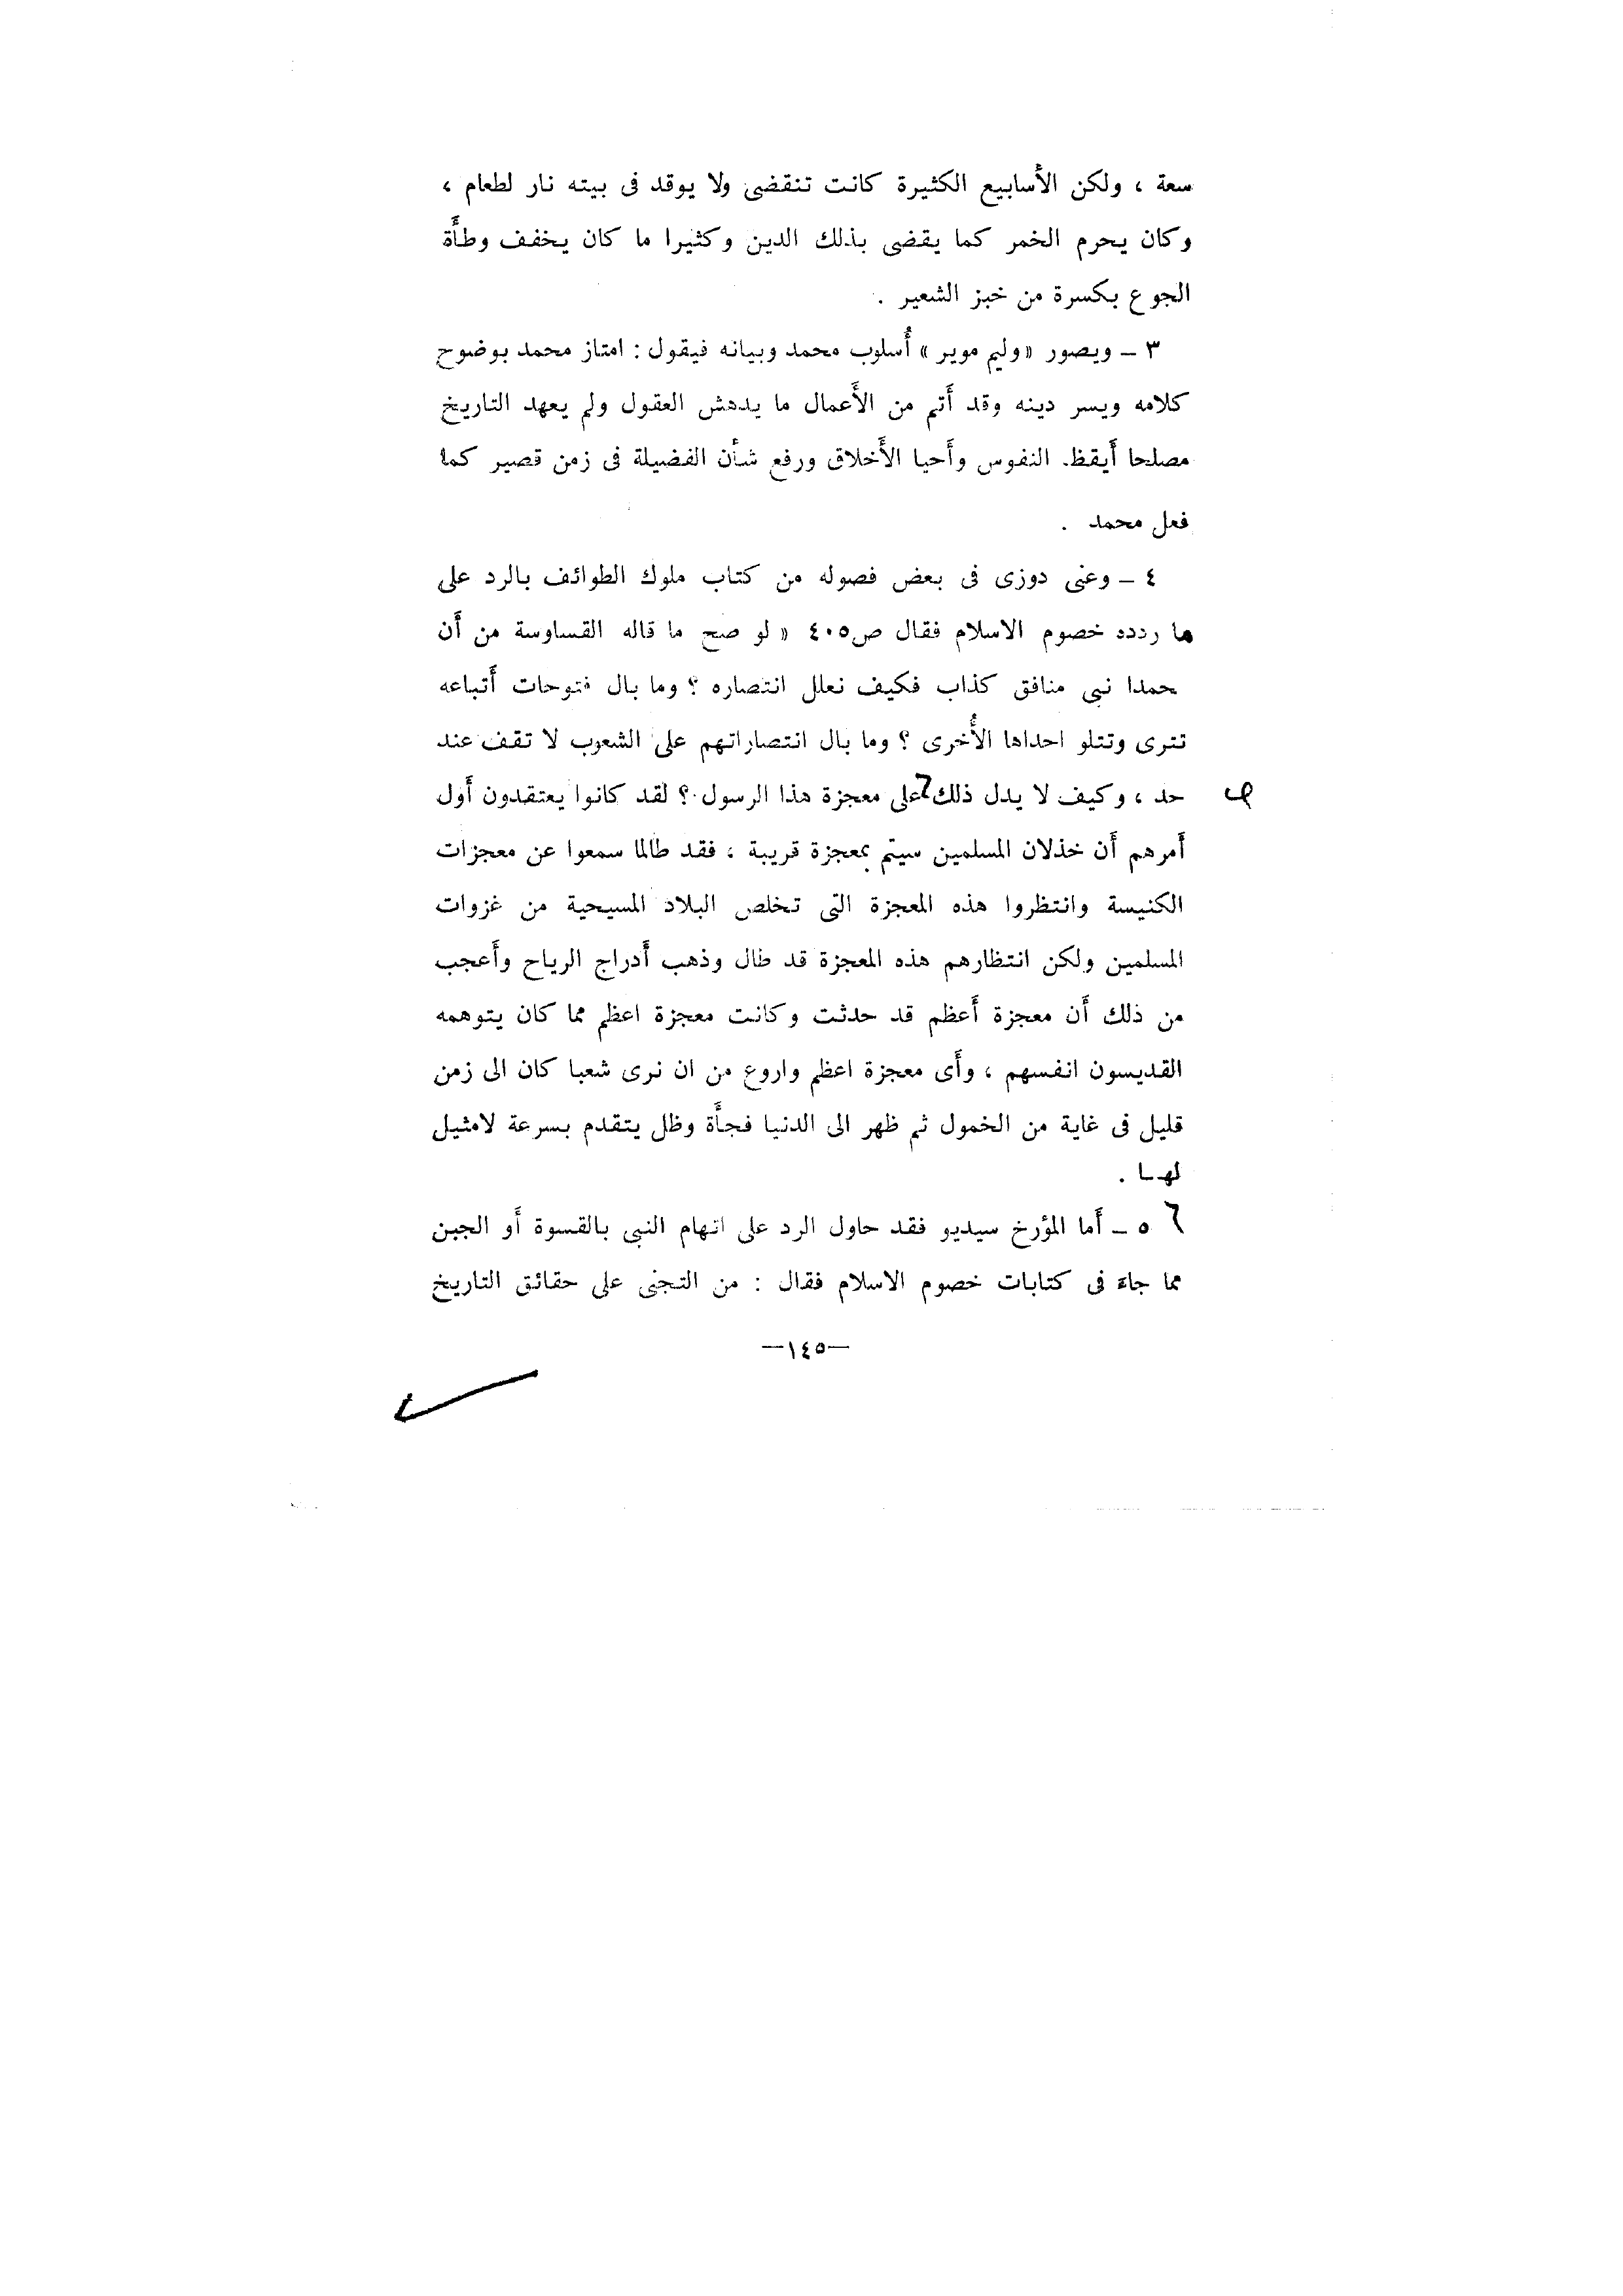 سعة ، ولكن الأسابيع الكثيرة كانت تنقضى ولا يوقد فى بيته نار لطعام ،
وكان يحرم الخمر كما يقضى بذلك الدين وكثيرا ما كان يخفف وطأة
الجوع بكسرة من خبز الشعير .
٣ ــ ويصور « وليم موير » أُسلوب محمد وبيانه فيقول : امتاز محمد بوضوح
كلامه ويسر دينه وقد أَتم من الأَعمال ما يدهش العقول ولم يعهد التاريخ
مصلحا أَيقظ النفوس وأَحيا الأَخلاق ورفع شأن الفضيلة فى زمن قصير كما
فعل محمد .
٤ ــ وعنى دوزى فى بعض فصوله من كتاب ملوك الطوائف بالرد على
ما ردده خصوم الاسلام فقال ص٤٠٥ « لو صح ما قاله القساوسة من أَن
حمدا نبى منافق كذاب فكيف نعلل انتصاره ؟ وما بال فتوحات أَتباعه
تترى وتتلو احداها الأُخرى ؟ وما بال انتصاراتهم على الشعوب لا تقف عند
حد ، وكيف لا يدل ذلك على معجزة هذا الرسول ؟ لقد كانوا يعتقدون أَول
أَمرهم أَن خذلان المسلمين سيتم بمعجزة قريبة ، فقد طالما سمعوا عن معجزات
الكنيسة وانتظروا هذه المعجزة التى تخلص البلاد المسيحية من غزوات
المسلمين ولكن انتظارهم هذه المعجزة قد طال وذهب أَدراج الرياح وأَعجب
من ذلك أَن معجزة أَعظم قد حدثت وكانت معجزة اعظم مما كان يتوهمه
القديسون انفسهم ، وأَى معجزة اعظم واروع من ان نرى شعبا كان الى زمن
قليل فى غاية من الخمول ثم ظهر الى الدنيا فجأَة وظل يتقدم بسرعة لامثيل
لهـا .
٥ ــ أَما المؤرخ سيديو فقد حاول الرد على اتهام النبى بالقسوة أَو الجبن
مما جاء فى كتابات خصوم الاسلام فقال : من التجنى على حقائق التاريخ
—١٤٥—